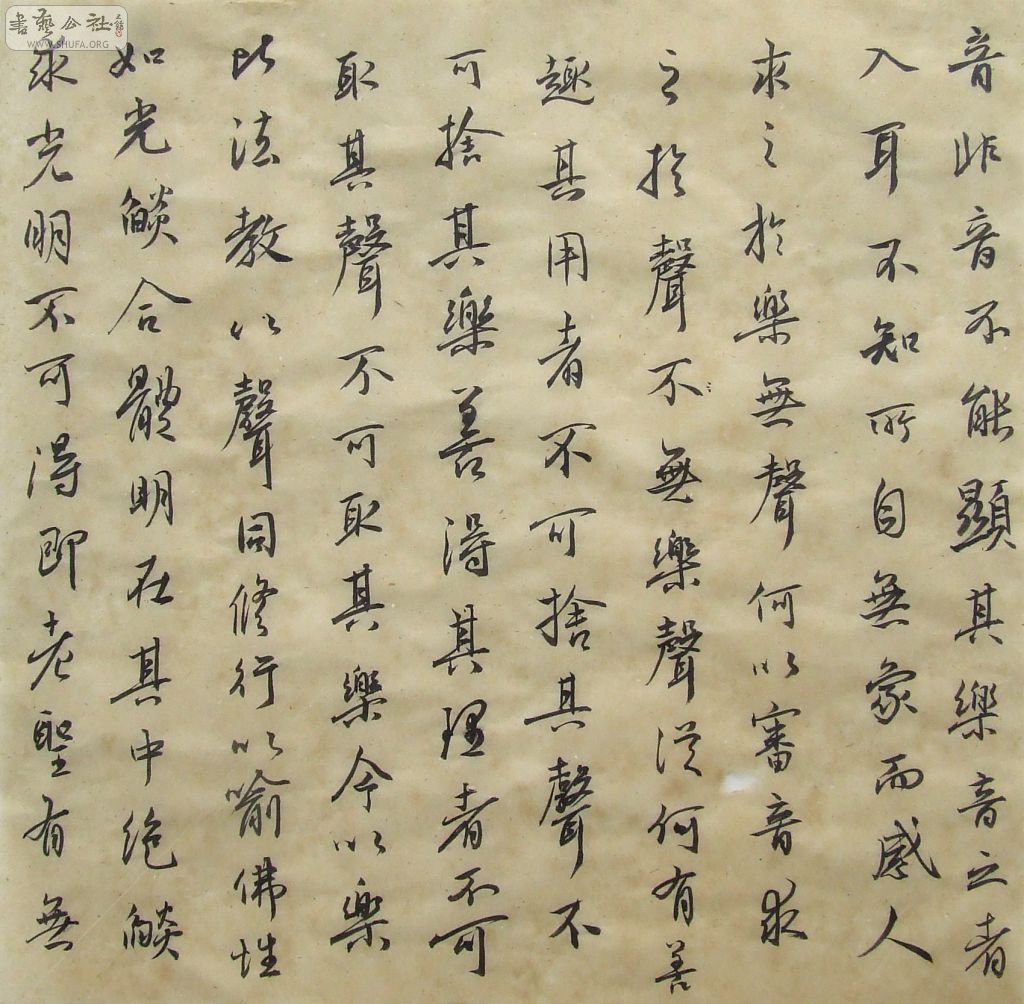 音非音不能顯其樂音之者
入耳不知所自無象而感人
求之於樂無聲何以審音求
之於聲不無樂聲從何有善
趣其用者不可捨其聲不
可捨其樂善得其理者不可
取其聲不可取其樂今以樂
此法教以聲同修行以喻佛性
如光燄合體明在其中絶燄
求光明不可得即老聖有無
書藝公社
WWW.SHUFA.ORG